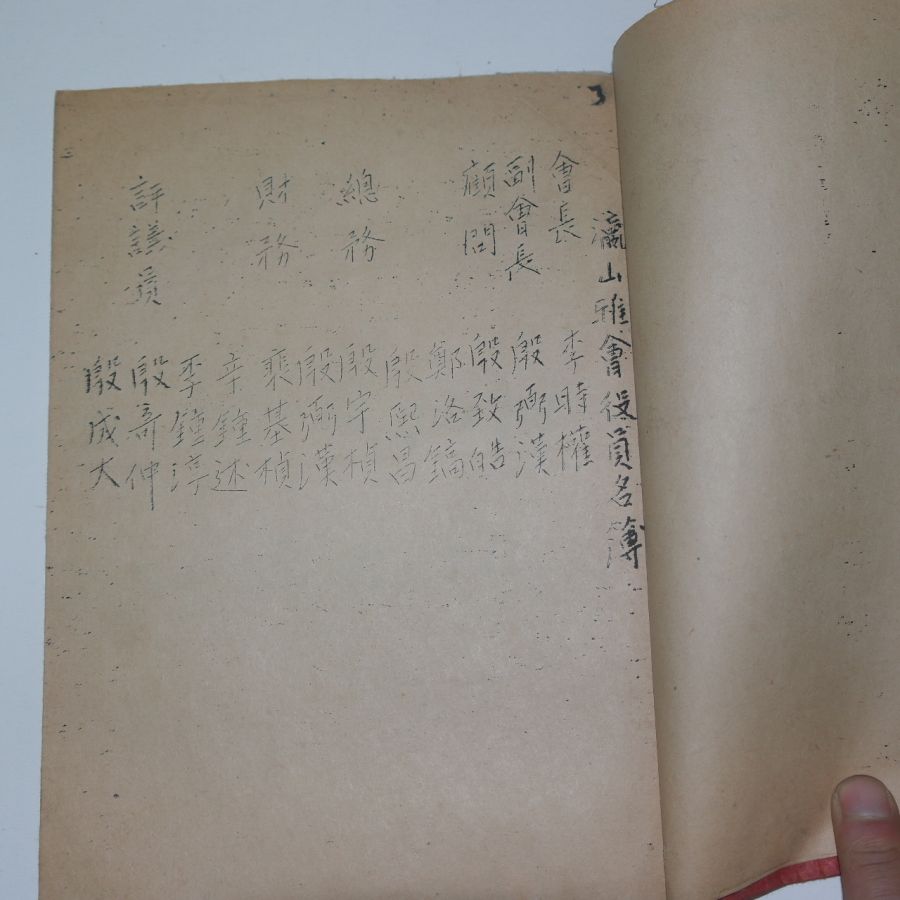 3
瀛山雅會役員名簿
會長 李時權
副會長 殷弼漢
顧問 殷致皓
鄭洛鎬
殷熙昌
總務 殷宇楨
殷弼漢
財務 裵基楨
辛鍾述
李鍾淳
評議員 殷哥仲
殷成大